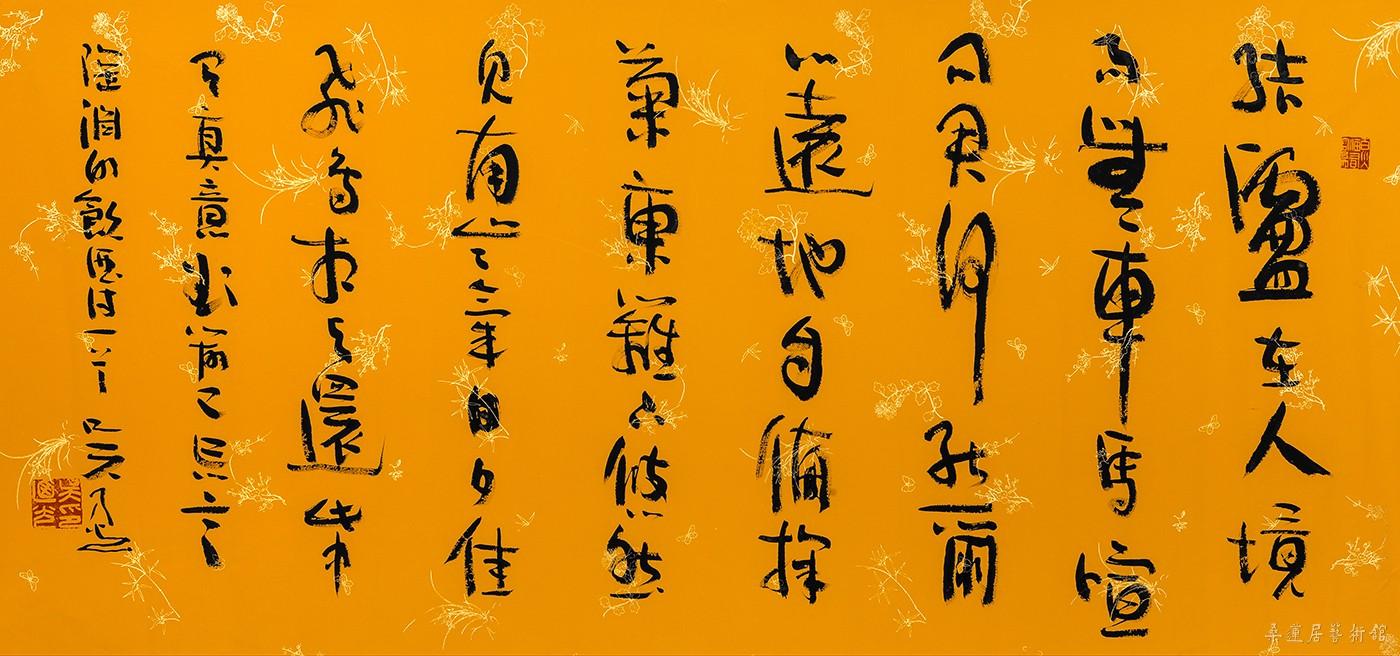 結廬在人境
而無車馬喧
問君何能爾
心遠地自偏採
菊東籬下悠然
見南山〻氣日夕佳
飛鳥相與還此中
有真意欲辨已忘言
陶淵明飲酒詩一首
蓮居藝術館